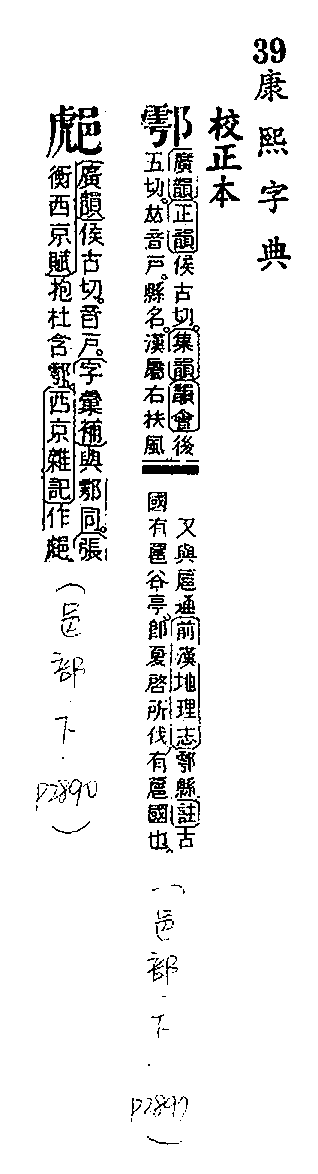 39
康熙字典
校正本
鄠
廣韻正韻侯古切。集韻韻會後
五切。𠀤音戸。縣名。漢屬右扶風
又與扈通前漢地理志鄠縣註古
國有扈谷亭。卽夏啓所伐有扈國也。
(邑部·下·P2897)
廣韻侯古切。音戸。字彙補與鄠同。張
衡西京賦抱杜含鄠。西京雜記作
(邑部·下·P2890)